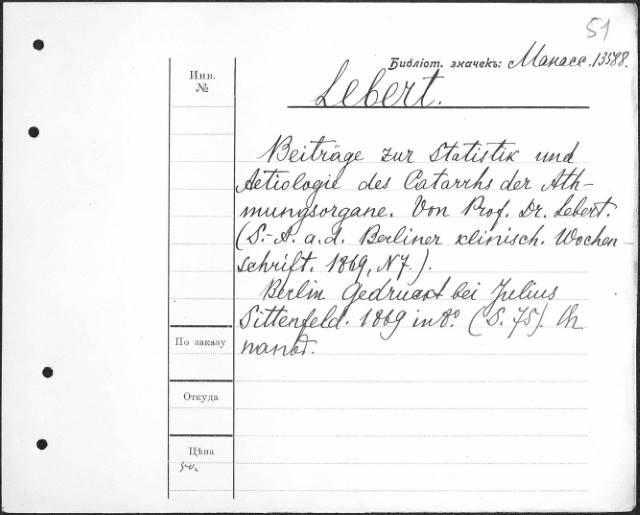 51
Библіот. значекъ: Манасс. 13588.
Инв.
№
Lebert.
Beiträge zur Statistik und
Aetiologie des Catarrhs der Ath-
mungsorgane. Von Prof. Dr. Lebert.
(S.-A. a. d. Berliner klinisch. Wochen
schrift. 1869, N7.).
Berlin Gedruckt bei Julius
Sittenfeld. 1869 in 8º. (S. 75).
По заказу
Откуда
Цѣна
50к